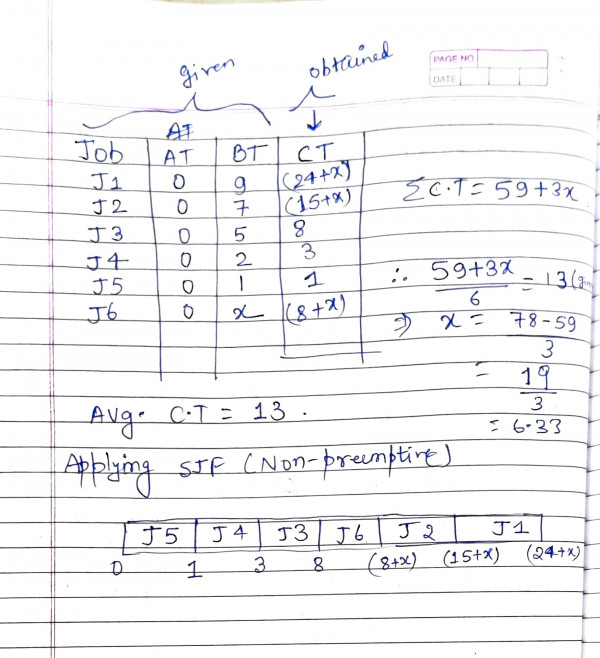 PAGE NO
DATE
given
obtained
Job AT BT CT
J1 0 9 (24+x)
J2 0 7 (15+x)
J3 0 5 8
J4 0 2 3
J5 0 1 1
J6 0 x (8+x)
ΣC.T = 59+3x
∴ 59+3x / 6 = 13
⇒ x = 78-59 / 3
= 19 / 3
= 6.33
Avg. C.T = 13.
Applying SJF (Non-preemptive)
J5 J4 J3 J6 J2 J1
0 1 3 8 (8+x) (15+x) (24+x)